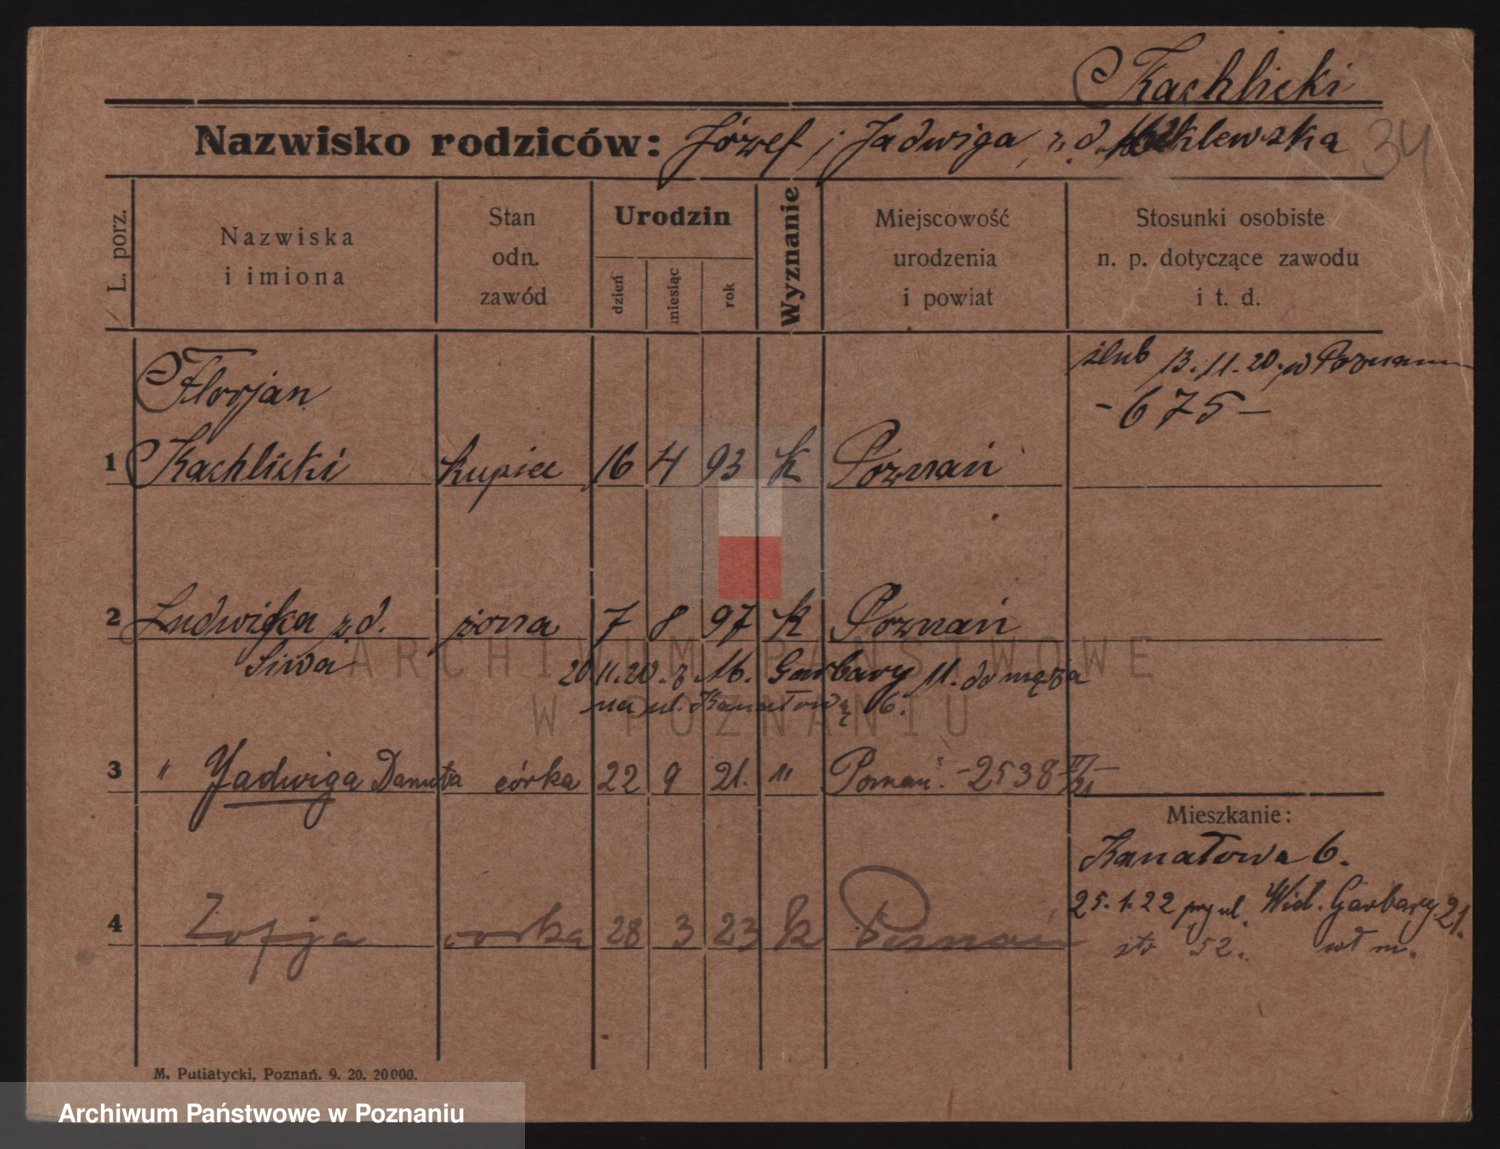 Kachlicki
Nazwisko rodziców: Józef i Jadwiga z d. 34
L. porz.
Nazwiska
i imiona
Stan
odn.
zawód
Urodzin
dzień
miesiąc
rok
Wyznanie
Miejscowość
urodzenia
i powiat
Stosunki osobiste
n. p. dotyczące zawodu
i t. d.
ślub 13.11.20. w Poznaniu
-675-
Florjan
1 Kachlicki kupiec 16 4 93 k Poznań
2 Ludwika z d. żona 7 8 97 k Poznań
Siwa
20.11.20. z W. Garbary 11. do męża
na ul. Kanałową 6.
3 " Jadwiga Danuta córka 22 9 21. " Poznań. -2538
Mieszkanie:
Kanałowa 6.
25.1.22 przy ul. Wiel. Garbary 21.
str 52. wł m.
4 Zofja córka 28 3 23 k Poznań
M. Putiatycki, Poznań. 9. 20. 20000.
ARCHIWUM PAŃSTWOWE
W POZNANIU
Archiwum Państwowe w Poznaniu